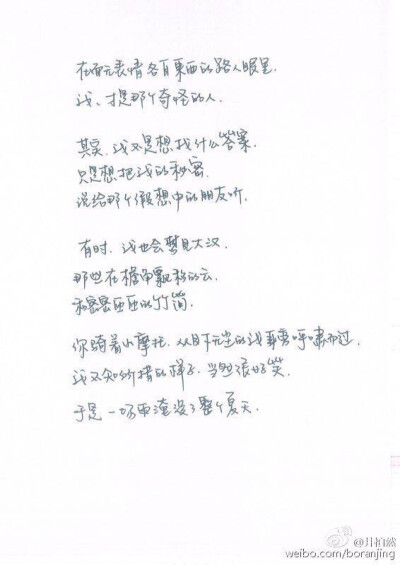 在面无表情各自東西的路人眼里，
我、才是那个奇怪的人．
其实．我不是想找什么答案．
只是想把我的秘密．
说给那个假想中的朋友听．
有时．我也会梦见大汉．
那些在檐角飘移的云．
和密密匝匝的竹简．
你骑着小摩托．从目下无尘的我耳旁呼啸而过．
我不知所措的样子．当然很好笑．
于是一场雨淹没了整个夏天．
@井柏然
weibo.com/boranjing